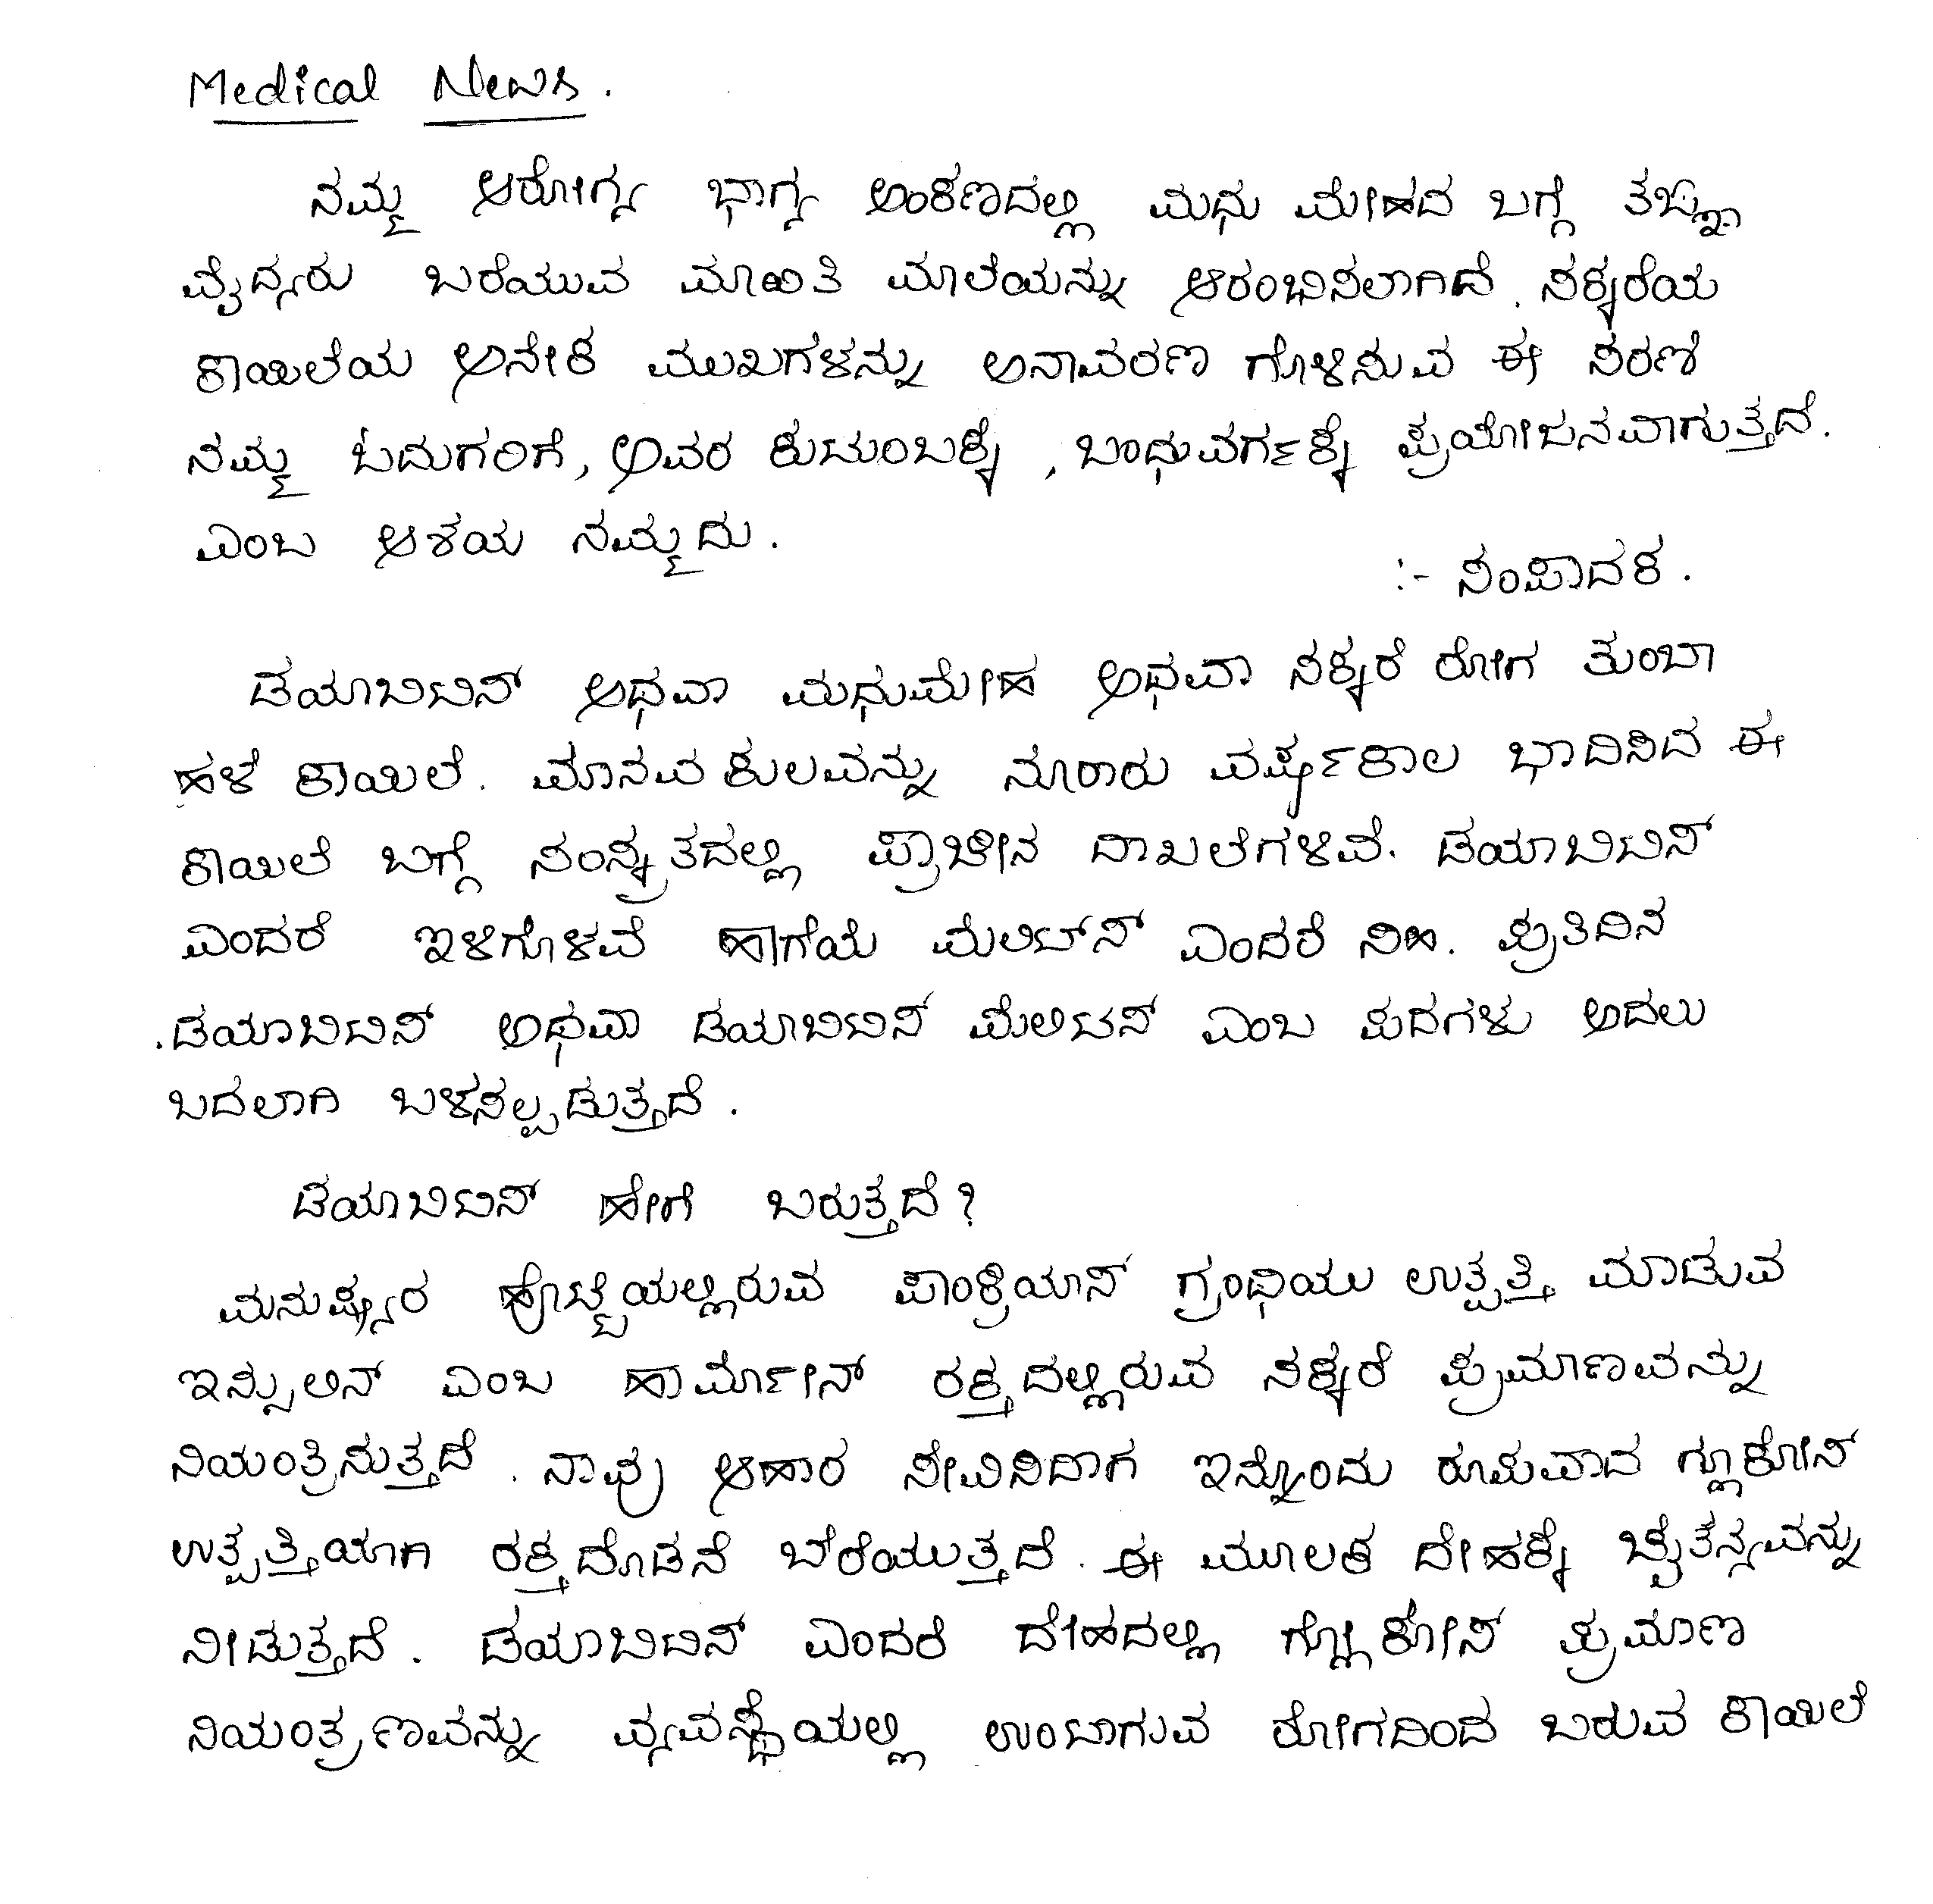 Medical News.
ನಮ್ಮ ಆರೋಗ್ಯ ಭಾಗ್ಯ ಅಂಕಣದಲ್ಲಿ ಮಧು ಮೇಹದ ಬಗ್ಗೆ ತಜ್ಞ
ವೈದ್ಯರು ಬರೆಯುವ ಮಾಹಿತಿ ಮಾಲೆಯನ್ನು ಆರಂಭಿಸಲಾಗಿದೆ. ಸಕ್ಕರೆಯ
ಕಾಯಿಲೆಯ ಅನೇಕ ಮುಖಗಳನ್ನು ಅನಾವರಣ ಗೊಳಿಸುವ ಈ ಸರಣಿ
ನಮ್ಮ ಓದುಗರಿಗೆ, ಅವರ ಕುಟುಂಬಕ್ಕೆ, ಬಂಧುವರ್ಗಕ್ಕೆ ಪ್ರಯೋಜನವಾಗುತ್ತದೆ.
ಎಂಬ ಆಶಯ ನಮ್ಮದು.
:- ಸಂಪಾದಕ.
ಡಯಾಬಿಟಿಸ್ ಅಥವಾ ಮಧುಮೇಹ ಅಥವಾ ಸಕ್ಕರೆ ರೋಗ ತುಂಬಾ
ಹಳೆ ಕಾಯಿಲೆ. ಮಾನವ ಕುಲವನ್ನು ನೂರಾರು ವರ್ಷಕಾಲ ಭಾದಿಸಿದ ಈ
ಕಾಯಿಲೆ ಬಗ್ಗೆ ಸಂಸ್ಕೃತದಲ್ಲಿ ಪ್ರಾಚೀನ ದಾಖಲೆಗಳಿವೆ. ಡಯಾಬಿಟಿಸ್
ಎಂದರೆ ಇಳಿಗೊಳವೆ ಹಾಗೆಯೆ ಮೆಲಿಟಸ್ ಎಂದರೆ ಸಿಹಿ. ಪ್ರತಿದಿನ
ಡಯಾಬಿಟಿಸ್ ಅಥವಾ ಡಯಾಬಿಟಿಸ್ ಮೆಲಿಟಸ್ ಎಂಬ ಪದಗಳು ಅದಲು
ಬದಲಾಗಿ ಬಳಸಲ್ಪಡುತ್ತದೆ.
ಡಯಾಬಿಟಿಸ್ ಹೇಗೆ ಬರುತ್ತದೆ?
ಮನುಷ್ಯರ ಹೊಟ್ಟೆಯಲ್ಲಿರುವ ಪಾಂಕ್ರಿಯಾಸ್ ಗ್ರಂಥಿಯು ಉತ್ಪತ್ತಿ ಮಾಡುವ
ಇನ್ಸುಲಿನ್ ಎಂಬ ಹಾರ್ಮೋನ್ ರಕ್ತದಲ್ಲಿರುವ ಸಕ್ಕರೆ ಪ್ರಮಾಣವನ್ನು
ನಿಯಂತ್ರಿಸುತ್ತದೆ. ನಾವು ಆಹಾರ ಸೇವಿಸಿದಾಗ ಇನ್ನೊಂದು ರೂಪವಾದ ಗ್ಲೂಕೋಸ್
ಉತ್ಪತ್ತಿಯಾಗಿ ರಕ್ತದೊಡನೆ ಬೆರೆಯುತ್ತದೆ. ಈ ಮೂಲಕ ದೇಹಕ್ಕೆ ಚೈತನ್ಯವನ್ನು
ನೀಡುತ್ತದೆ. ಡಯಾಬಿಟಿಸ್ ಎಂದರೆ ದೇಹದಲ್ಲಿ ಗ್ಲೂಕೋಸ್ ಪ್ರಮಾಣ
ನಿಯಂತ್ರಣವನ್ನು ವ್ಯವಸ್ಥೆಯಲ್ಲಿ ಉಂಟಾಗುವ ರೋಗದಿಂದ ಬರುವ ಕಾಯಿಲೆ